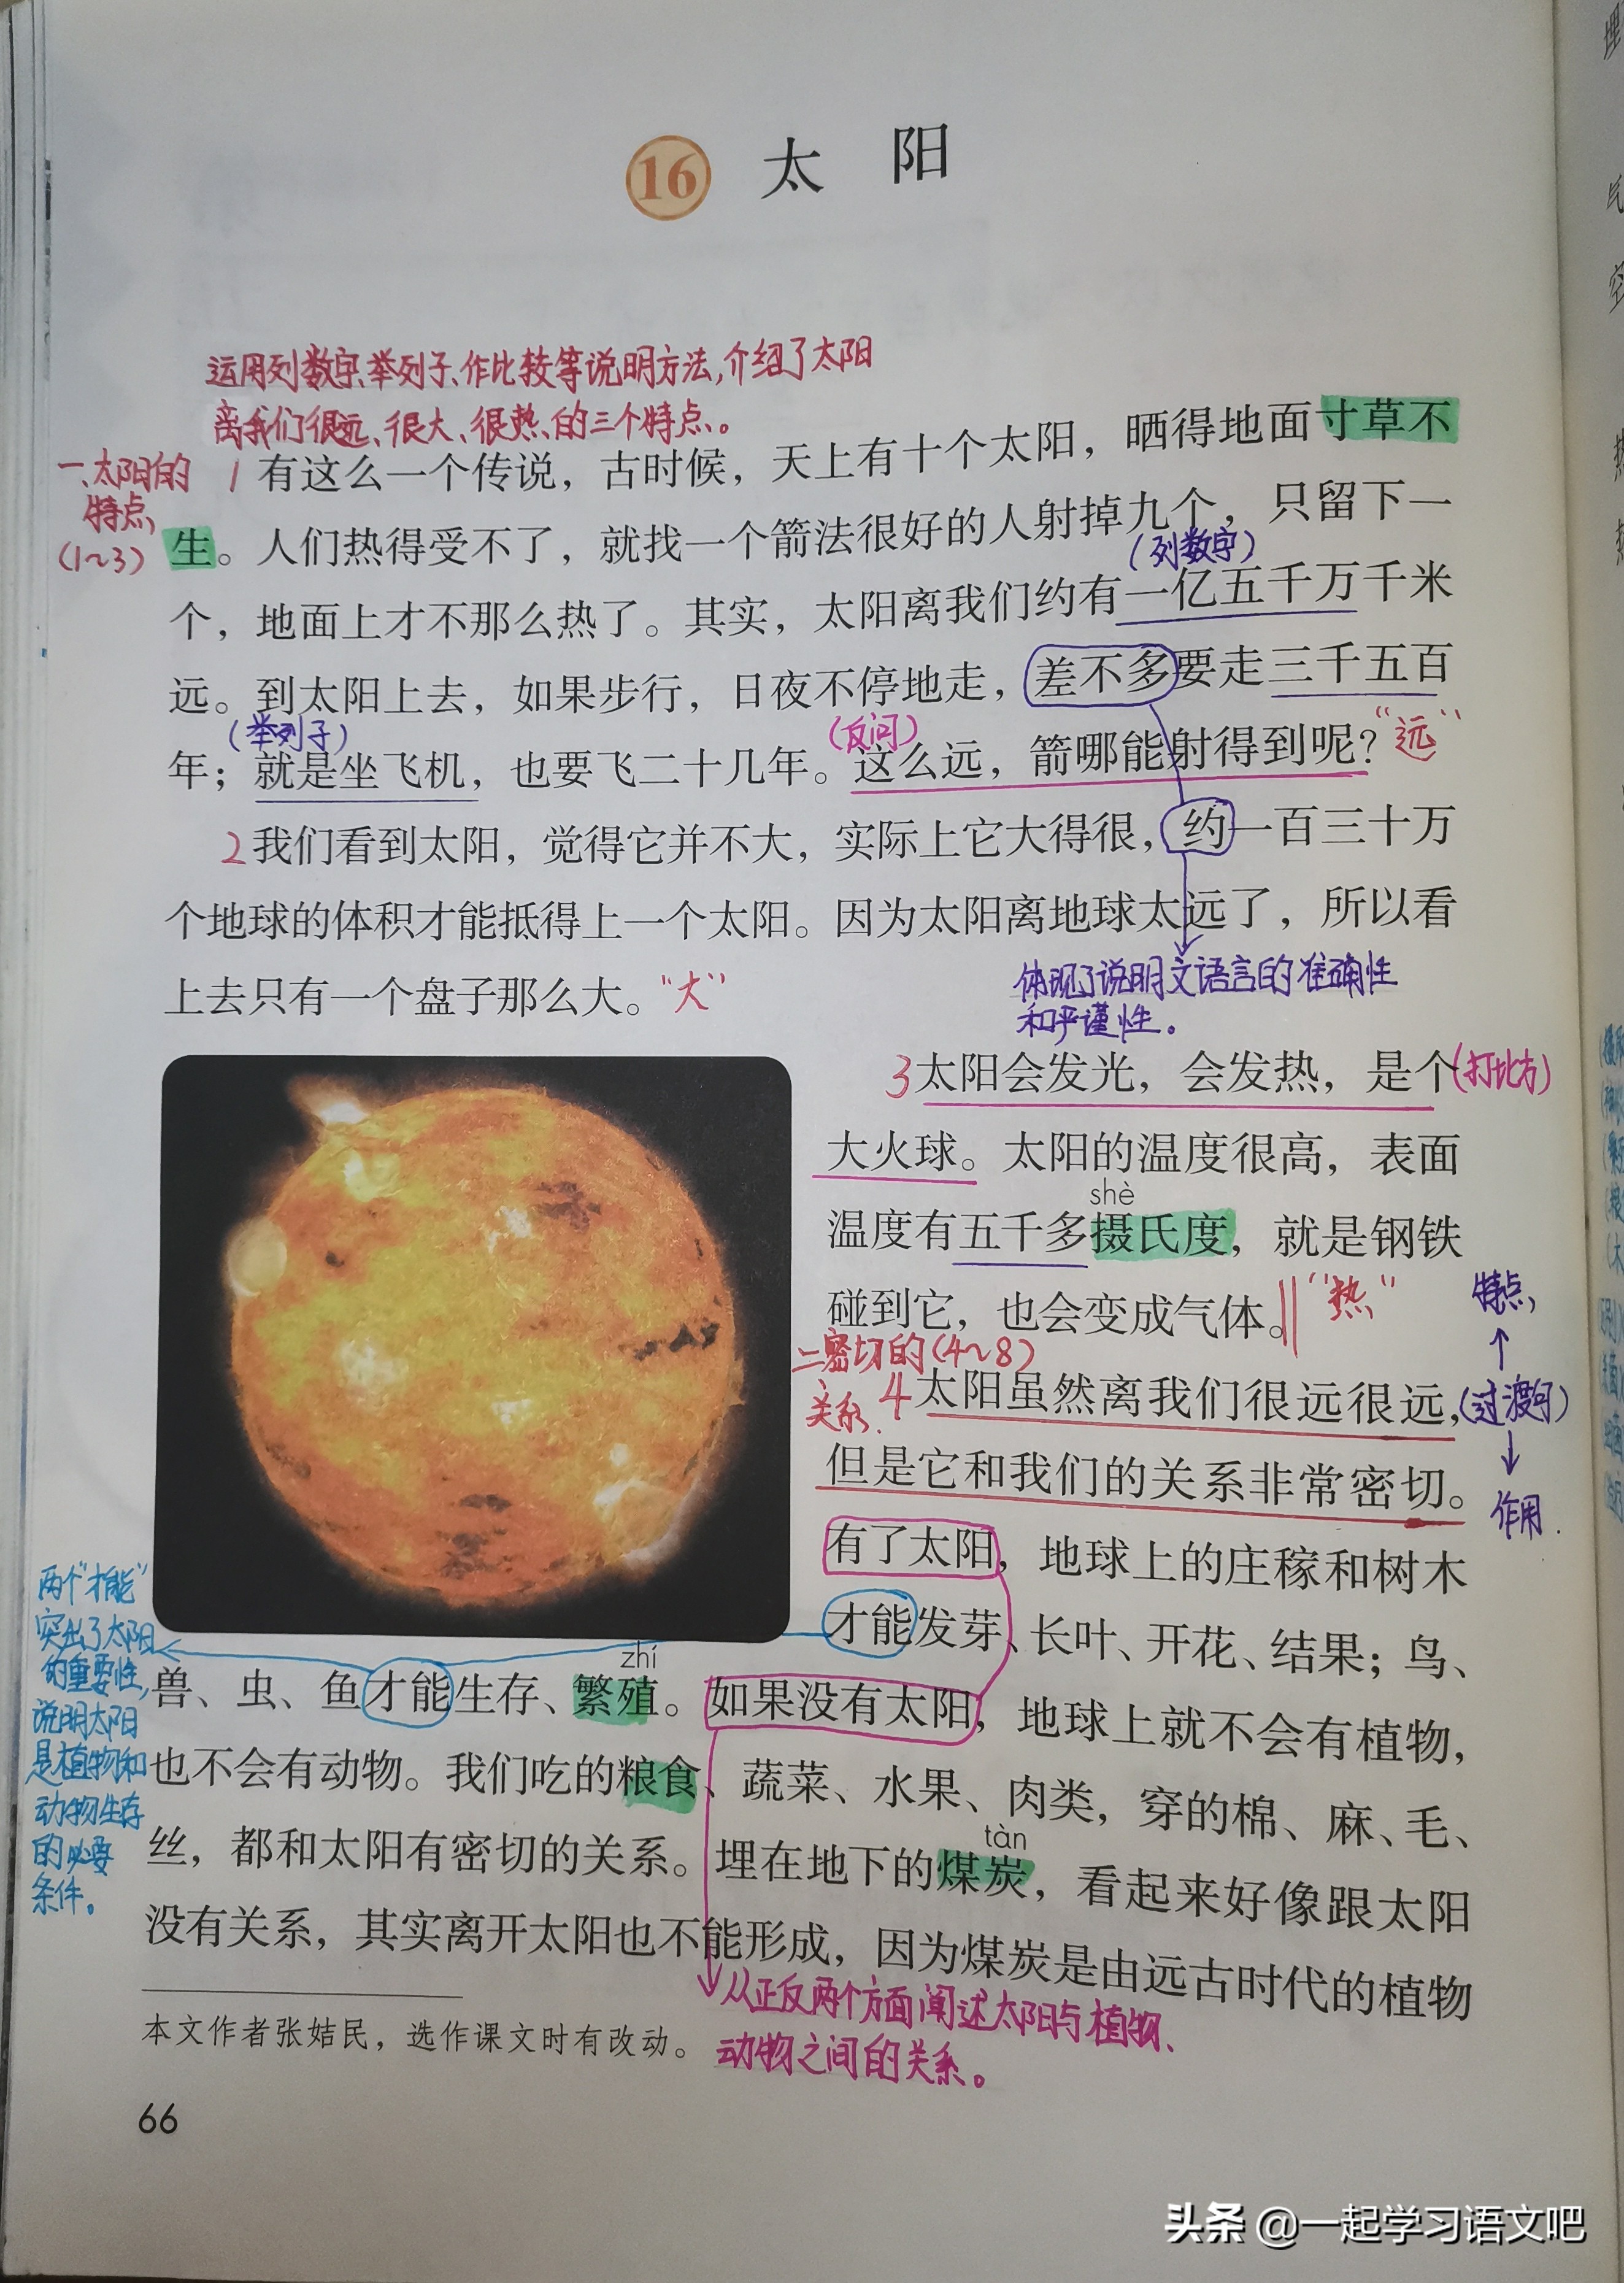 16 太阳
运用列数字、举列子、作比较等说明方法,介绍了太阳
离我们很远、很大、很热的三个特点。
一、太阳的
特点
(1~3)
1 有这么一个传说，古时候，天上有十个太阳，晒得地面寸草不
生。人们热得受不了，就找一个箭法很好的人射掉九个，只留下一
(列数字)
个，地面上才不那么热了。其实，太阳离我们约有一亿五千万千米
远。到太阳上去，如果步行，日夜不停地走，差不多要走三千五百
(举列子)
(反问)
年；就是坐飞机，也要飞二十几年。这么远，箭哪能射得到呢？“远”
2 我们看到太阳，觉得它并不大，实际上它大得很，约一百三十万
个地球的体积才能抵得上一个太阳。因为太阳离地球太远了，所以看
上去只有一个盘子那么大。“大”
体现了说明文语言的准确性
和严谨性。
3 太阳会发光，会发热，是个(打比方)
大火球。太阳的温度很高，表面
shè
温度有五千多摄氏度，就是钢铁
碰到它，也会变成气体。“热”
二密切的(4~8)
关系.
4 太阳虽然离我们很远很远，(过渡句)
特点
作用.
但是它和我们的关系非常密切。
有了太阳，地球上的庄稼和树木
才能发芽、长叶、开花、结果；鸟、
zhí
兽、虫、鱼才能生存、繁殖。如果没有太阳，地球上就不会有植物，
也不会有动物。我们吃的粮食、蔬菜、水果、肉类，穿的棉、麻、毛、
tàn
丝，都和太阳有密切的关系。埋在地下的煤炭，看起来好像跟太阳
没有关系，其实离开太阳也不能形成，因为煤炭是由远古时代的植物
两个“才能”
突出了太阳
的重要性,
说明太阳
是植物和
动物生存
的必要
条件。
从正反两个方面阐述太阳与植物、
动物之间的关系。
本文作者张姞民，选作课文时有改动。
66
头条 @一起学习语文吧